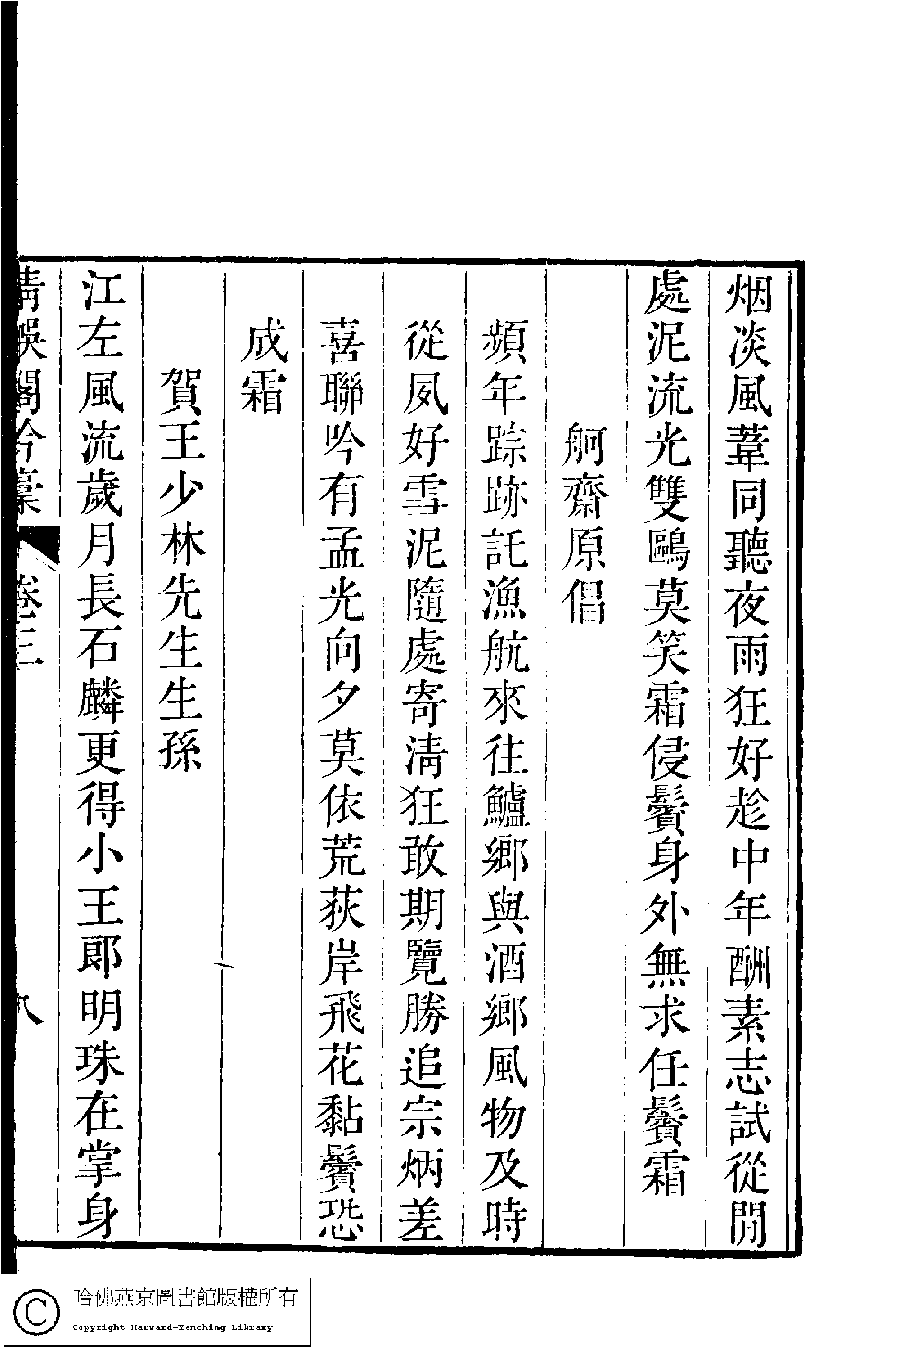 烟淡風葦同聽夜雨狂好趁中年酬素志試從閒
處泥流光雙鷗莫笑霜侵鬢身外無求任鬢霜
舸齋原倡
頻年踪跡託漁航來往鱸鄉與酒鄉風物及時
從夙好雪泥隨處寄淸狂敢期覽勝追宗炳差
喜聯吟有孟光向夕莫依荒荻岸飛花黏鬢恐
成霜
賀王少林先生生孫
江左風流歲月長石麟更得小王郎明珠在掌身
清娛閣吟稾 卷三 八
哈佛燕京圖書館版權所有
Copyright Harvard-Yenching Library